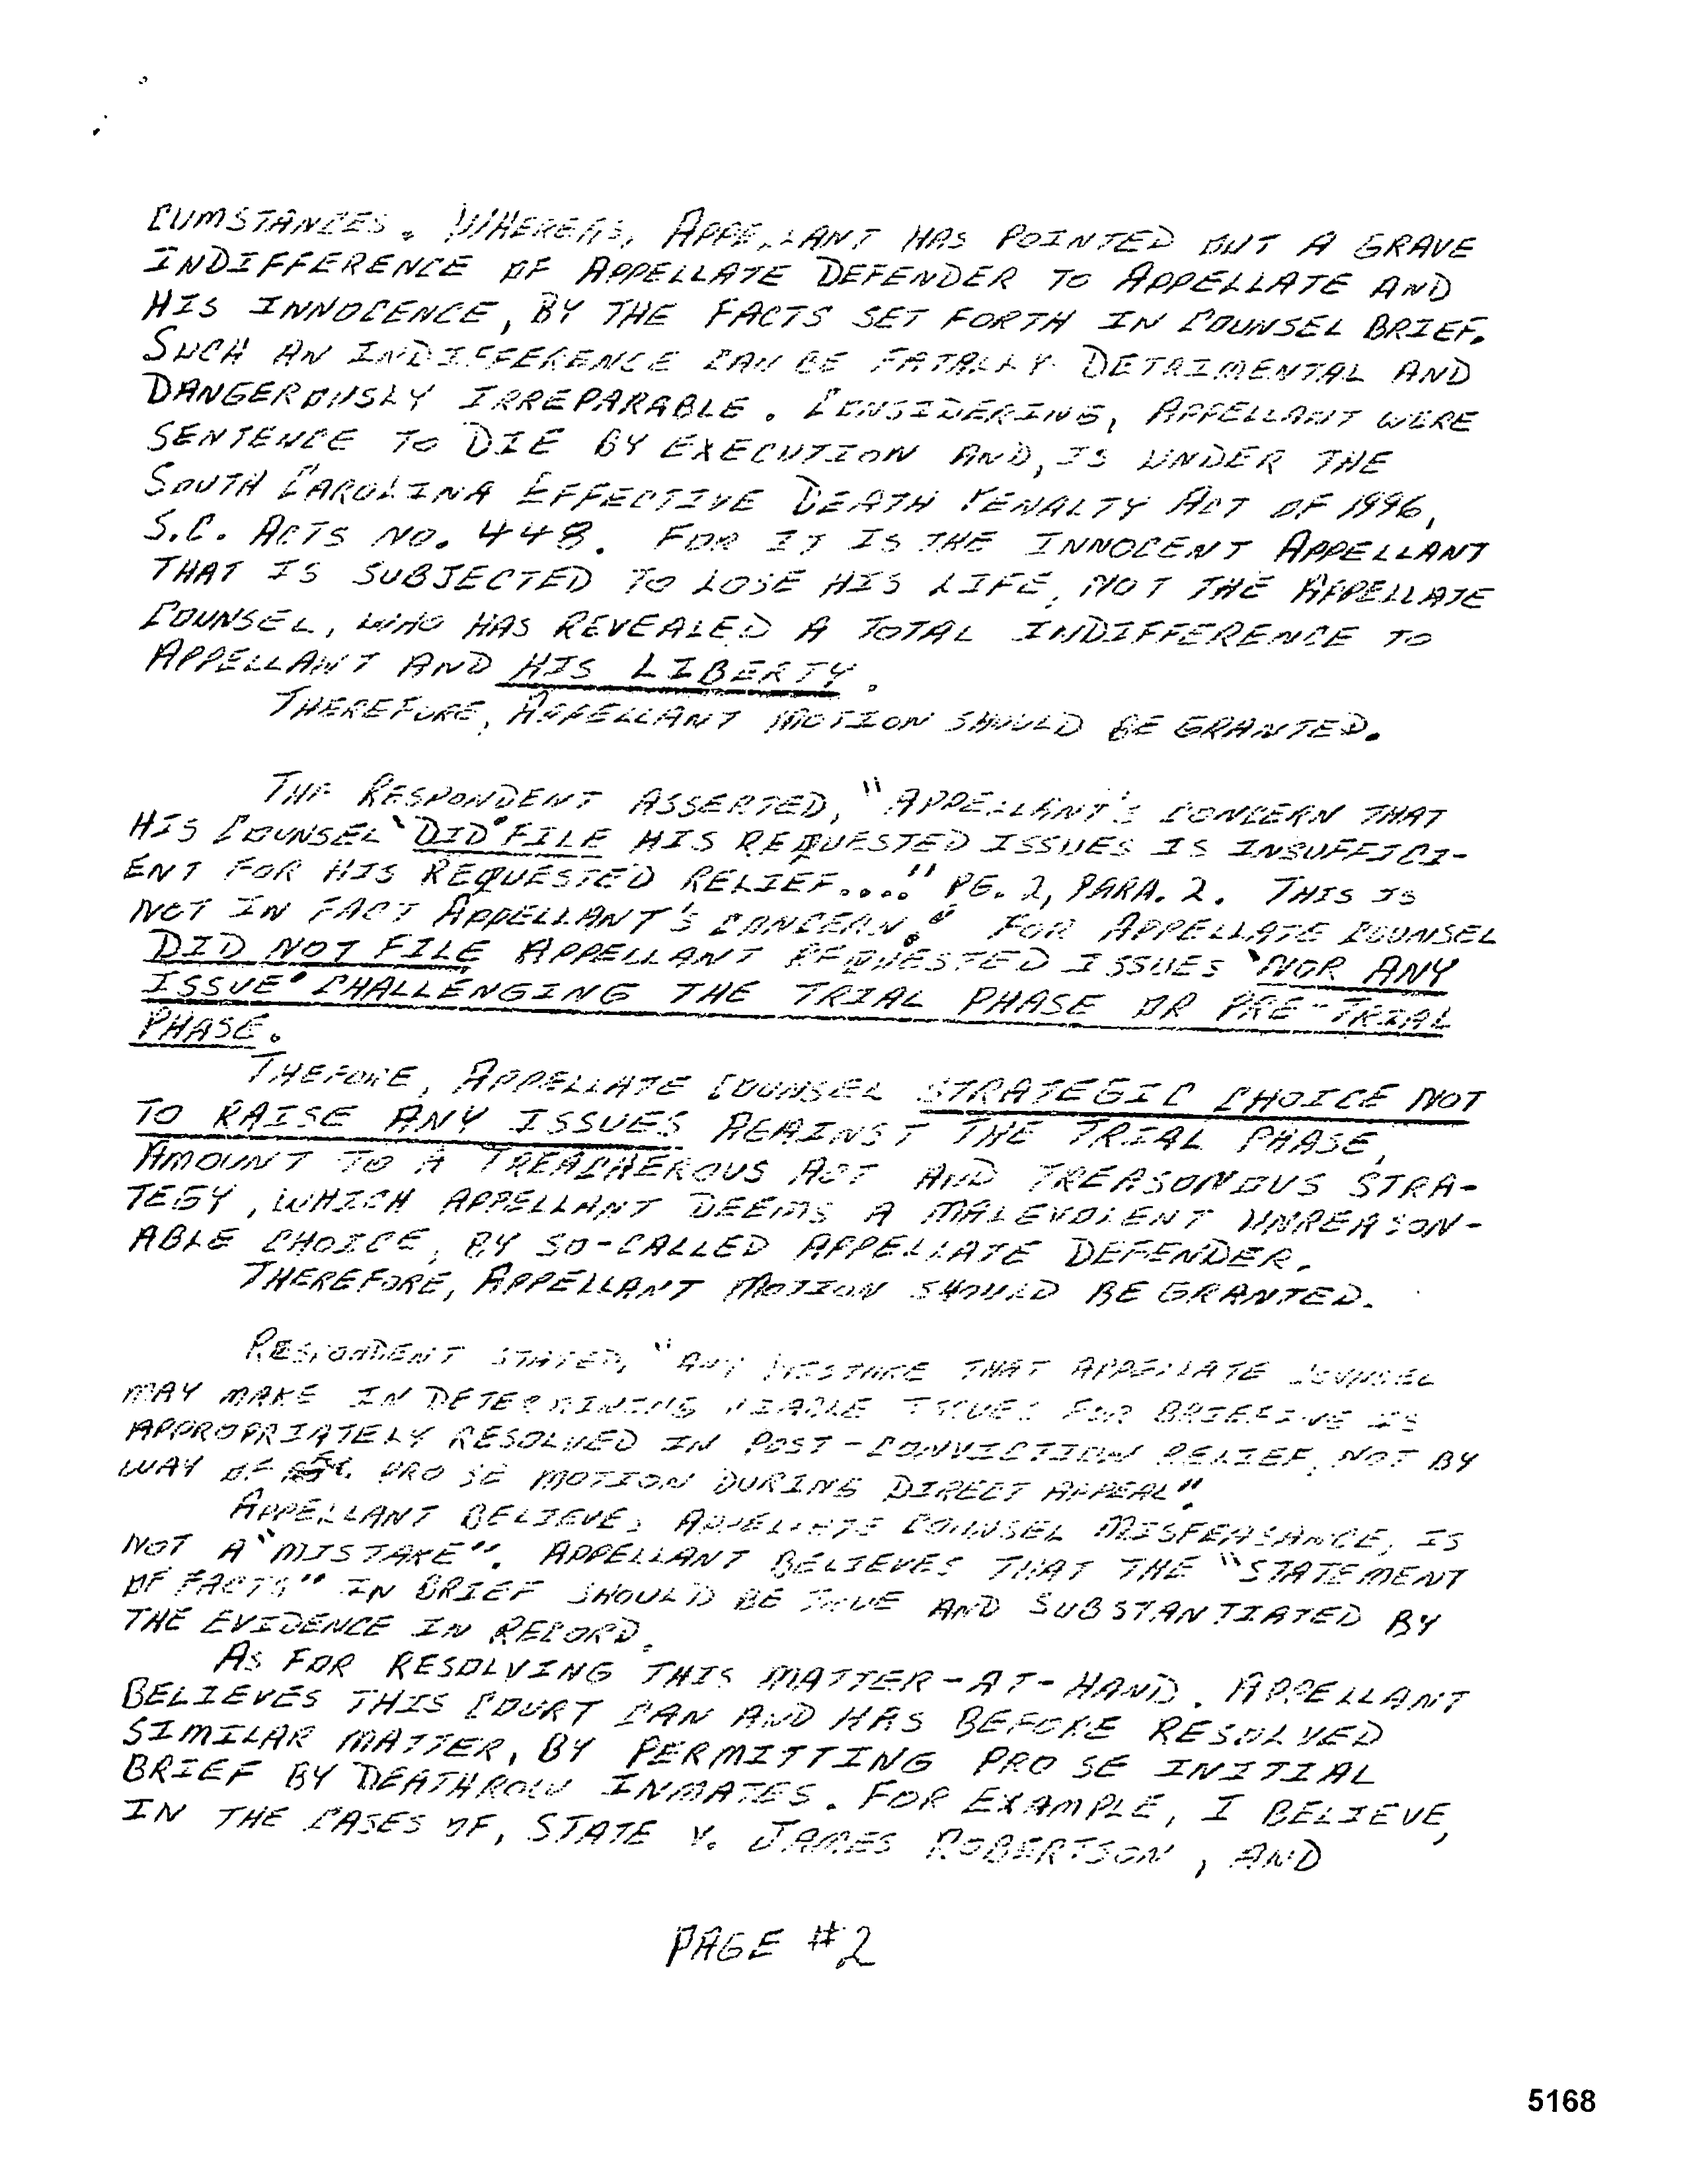 CUMSTANCES. WHEREAS, APPELLANT HAS POINTED OUT A GRAVE
INDIFFERENCE OF APPELLATE DEFENDER TO APPELLATE AND
HIS INNOCENCE, BY THE FACTS SET FORTH IN COUNSEL BRIEF.
SUCH AN INDIFFERENCE CAN BE FATALLY DETRIMENTAL AND
DANGEROUSLY IRREPARABLE. CONSIDERING, APPELLANT WERE
SENTENCE TO DIE BY EXECUTION AND, IS UNDER THE
SOUTH CAROLINA EFFECTIVE DEATH PENALTY ACT OF 1996,
S.C. ACTS NO. 448. FOR IT IS THE INNOCENT APPELLANT
THAT IS SUBJECTED TO LOSE HIS LIFE, NOT THE APPELLATE
COUNSEL, WHO HAS REVEALED A TOTAL INDIFFERENCE TO
APPELLANT AND HIS LIBERTY.
THEREFORE, APPELLANT MOTION SHOULD BE GRANTED.
THE RESPONDENT ASSERTED, "APPELLANT'S CONCERN THAT
HIS COUNSEL 'DID' FILE HIS REQUESTED ISSUES IS INSUFFICI-
ENT FOR HIS REQUESTED RELIEF...." PG. 2, PARA. 2. THIS IS
NOT IN FACT APPELLANT'S CONCERN. FOR APPELLATE COUNSEL
DID NOT FILE APPELLANT REQUESTED ISSUES 'NOR ANY
ISSUE' CHALLENGING THE TRIAL PHASE OR PRE-TRIAL
PHASE.
THEFORE, APPELLATE COUNSEL STRATEGIC CHOICE NOT
TO RAISE ANY ISSUES AGAINST THE TRIAL PHASE,
AMOUNT TO A TREACHEROUS ACT AND TREASONOUS STRA-
TEGY, WHICH APPELLANT DEEMS A MALEVOLENT UNREASON-
ABLE CHOICE, BY SO-CALLED APPELLATE DEFENDER.
THEREFORE, APPELLANT MOTION SHOULD BE GRANTED.
RESPONDENT STATED, "ANY MISTAKE THAT APPELLATE COUNSEL
MAY MAKE IN DETERMINING VIABLE ISSUES FOR BRIEFING IS
APPROPRIATELY RESOLVED IN POST-CONVICTION RELIEF, NOT BY
WAY OF PRO SE MOTION DURING DIRECT APPEAL".
APPELLANT BELIEVES APPELLATE COUNSEL MISFEASANCE, IS
NOT A "MISTAKE". APPELLANT BELIEVES THAT THE "STATEMENT
OF FACTS" IN BRIEF SHOULD BE TRUE AND SUBSTANTIATED BY
THE EVIDENCE IN RECORD.
AS FOR RESOLVING THIS MATTER-AT-HAND. APPELLANT
BELIEVES THIS COURT CAN AND HAS BEFORE RESOLVED
SIMILAR MATTER, BY PERMITTING PRO SE INITIAL
BRIEF BY DEATHROW INMATES. FOR EXAMPLE, I BELIEVE,
IN THE CASES OF, STATE V. JAMES ROBERTSON, AND
PAGE #2
5168